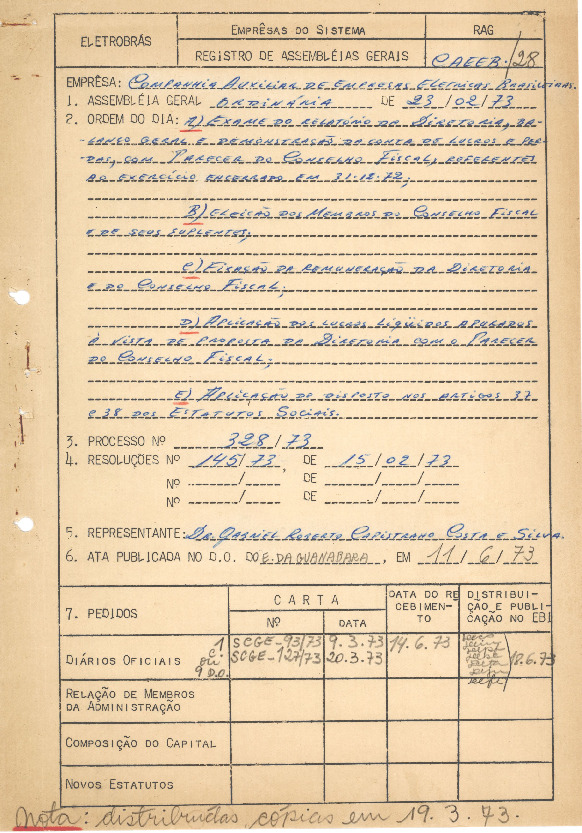 ELETROBRÁS
EMPRÊSAS DO SISTEMA
RAG
REGISTRO DE ASSEMBLÉIAS GERAIS
CAEEB/28
EMPRÊSA: COMPANHIA AUXILIAR DE EMPRESAS ELÉTRICAS BRASILEIRAS.
1. ASSEMBLÉIA GERAL ORDINÁRIA DE 23/02/73
2. ORDEM DO DIA: A) EXAME DO RELATÓRIO DA DIRETORIA, BA-
LANÇO GERAL E DEMONSTRAÇÃO DA CONTA DE LUCROS E PER-
DAS, COM PARECER DO CONSELHO FISCAL, REFERENTES
AO EXERCÍCIO ENCERRADO EM 31.12.72;
B) ELEIÇÃO DOS MEMBROS DO CONSELHO FISCAL
E DE SEUS SUPLENTES;
C) FIXAÇÃO DA REMUNERAÇÃO DA DIRETORIA
E DO CONSELHO FISCAL;
D) APLICAÇÃO DOS LUCROS LÍQÜIDOS APURADOS
À VISTA DE PROPOSTA DA DIRETORIA COM O PARECER
DO CONSELHO FISCAL;
E) APLICAÇÃO DO DISPOSTO NOS ARTIGOS 37
E 38 DOS ESTATUTOS SOCIAIS.
3. PROCESSO Nº 328/73
4. RESOLUÇÕES Nº 145/73, DE 15/02/73
Nº / DE / /
Nº / DE / /
5. REPRESENTANTE: DR. GABRIEL ROBERTO CAPISTRANO COSTA E SILVA.
6. ATA PUBLICADA NO D.O. DO E. DA GUANABARA, EM 11/6/73
7. PEDIDOS
CARTA
Nº
DATA
DATA DO RE
CEBIMEN-
TO
DISTRIBUI-
ÇÃO E PUBLI-
CAÇÃO NO EBI
DIÁRIOS OFICIAIS
9 D.O.
SCGE-93/73 9.3.73 14.6.73
SCGE-127/73 20.3.73
18.6.73
RELAÇÃO DE MEMBROS
DA ADMINISTRAÇÃO
COMPOSIÇÃO DO CAPITAL
NOVOS ESTATUTOS
Nota: distribuídas cópias em 19.3.73.